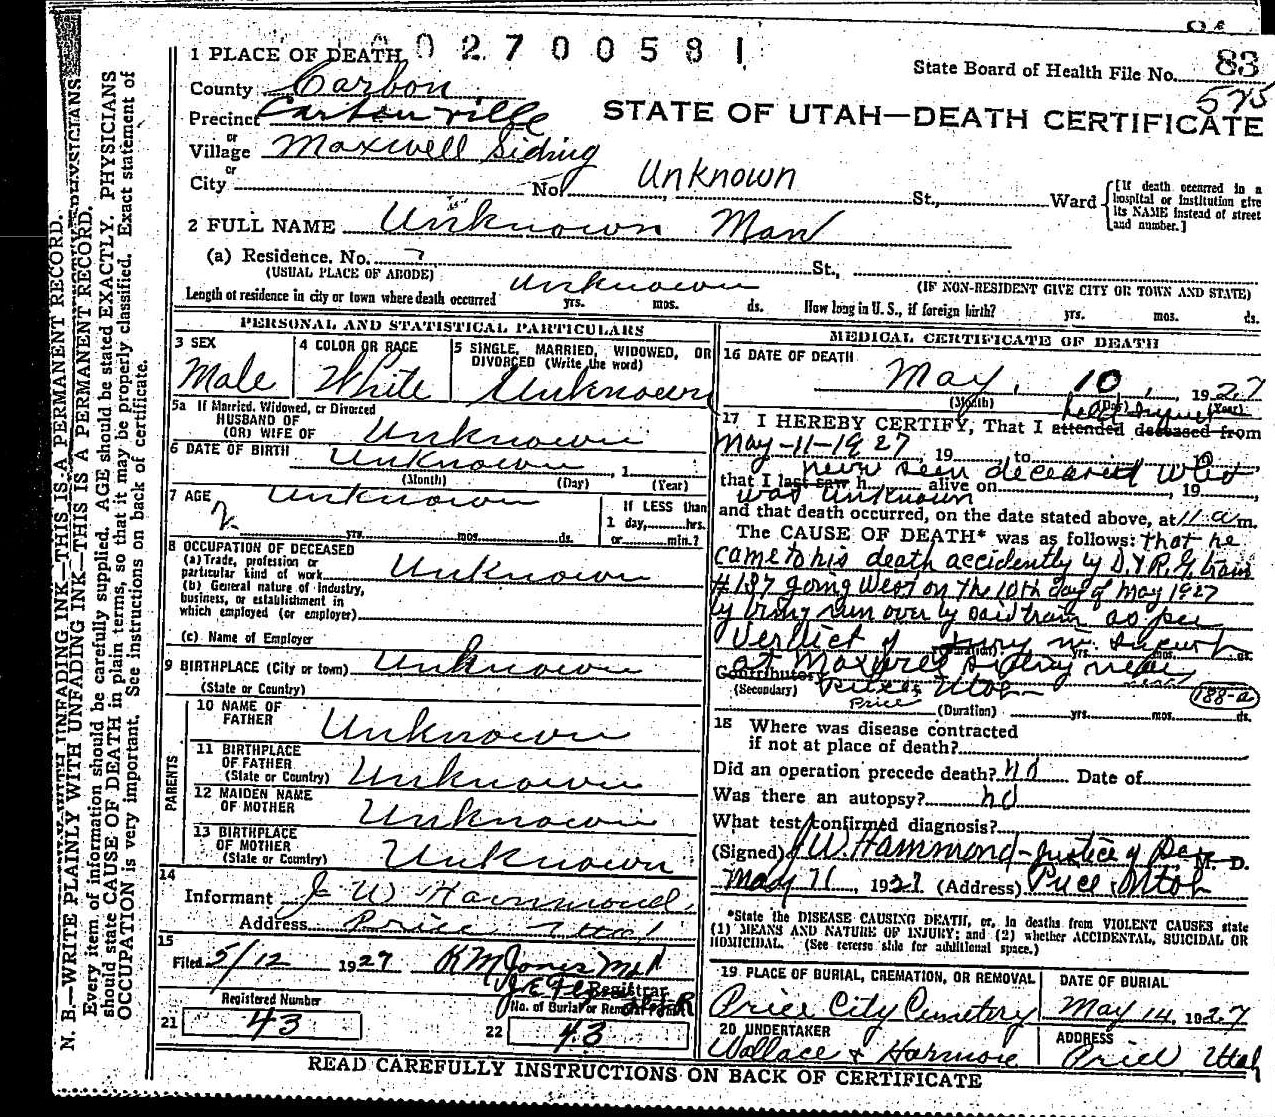 002700581
1 PLACE OF DEATH
State Board of Health File No. 83
575
County Carbon
STATE OF UTAH—DEATH CERTIFICATE
Precinct Carbonville
or
Village Maxwell Siding
or
City No. Unknown St., Ward
[If death occurred in a hospital or institution give its NAME instead of street and number.]
2 FULL NAME Unknown Man
(a) Residence. No. ? St.,
(USUAL PLACE OF ABODE)
(IF NON-RESIDENT GIVE CITY OR TOWN AND STATE)
Length of residence in city or town where death occurred unknown yrs. mos. ds. How long in U. S., if foreign birth? yrs. mos. ds.
PERSONAL AND STATISTICAL PARTICULARS
3 SEX
Male
4 COLOR OR RACE
White
5 SINGLE, MARRIED, WIDOWED, OR DIVORCED (Write the word)
Unknown
5a If Married, Widowed, or Divorced
HUSBAND OF
(OR) WIFE OF Unknown
6 DATE OF BIRTH Unknown, 1
(Month) (Day) (Year)
7 AGE Unknown
?
yrs. mos. ds.
If LESS than
1 day, hrs.
or min.?
8 OCCUPATION OF DECEASED
(a) Trade, profession or
particular kind of work Unknown
(b) General nature of industry,
business, or establishment in
which employed (or employer)
(c) Name of Employer
9 BIRTHPLACE (City or town) Unknown
(State or Country)
PARENTS
10 NAME OF
FATHER Unknown
11 BIRTHPLACE
OF FATHER
(State or Country) Unknown
12 MAIDEN NAME
OF MOTHER Unknown
13 BIRTHPLACE
OF MOTHER
(State or Country) Unknown
14
Informant J W Hammond
Address Price Utah
15
Filed 5/12 1927 R M Jones M D
Registrar
Registered Number
21 43
No. of Burial or Removal Permit
22 43
MEDICAL CERTIFICATE OF DEATH
16 DATE OF DEATH
May 10, 1927
(Month) (Day) (Year)
held Inquest
17 I HEREBY CERTIFY, That I attended deceased from
May-11-1927, 19 to 19
never seen deceased who
that I last saw h alive on, 19,
was unknown
and that death occurred, on the date stated above, at 11 a m.
The CAUSE OF DEATH* was as follows: that he
came to his death accidently by D. & R. G. train
#187 going West on the 10th day of May 1927
by being run over by said train as per
verdict of Jury
(Duration) yrs. mos. ds.
at Maxwell Siding near
Contributory
(Secondary) Price Utah
Price
188-a
(Duration) yrs. mos. ds.
18 Where was disease contracted
if not at place of death?
Did an operation precede death? no Date of
Was there an autopsy? no
What test confirmed diagnosis?
(Signed) J W Hammond - Justice of Peace M. D.
May 11, 1927 (Address) Price Utah
*State the DISEASE CAUSING DEATH, or, in deaths from VIOLENT CAUSES state
(1) MEANS AND NATURE OF INJURY; and (2) whether ACCIDENTAL, SUICIDAL OR
HOMICIDAL. (See reverse side for additional space.)
19 PLACE OF BURIAL, CREMATION, OR REMOVAL
Price City Cemetery
DATE OF BURIAL
May 14, 1927
20 UNDERTAKER
Wallace & Harmore
ADDRESS
Price Utah
READ CAREFULLY INSTRUCTIONS ON BACK OF CERTIFICATE
N. B.—WRITE PLAINLY WITH UNFADING INK—THIS IS A PERMANENT RECORD.
Every item of information should be carefully supplied. AGE should be stated EXACTLY. PHYSICIANS
should state CAUSE OF DEATH in plain terms, so that it may be properly classified. Exact statement of
OCCUPATION is very important. See instructions on back of certificate.